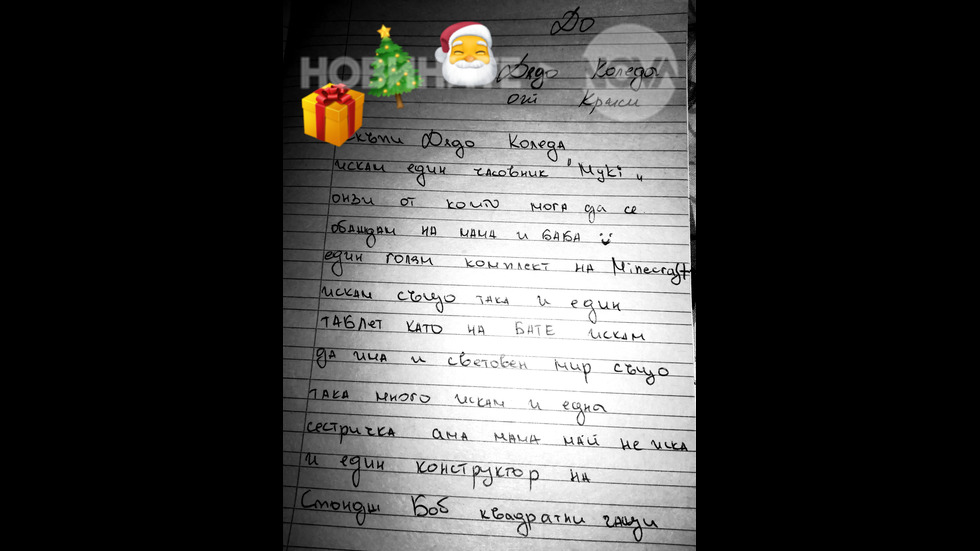 До
НОВИНИТЕ NOVA
Дядо Коледа
от Криси
скъпи Дядо Коледа
искам един часовник "Myki"
онзи от който мога да се
обаждам на мама и баба
един голям комплект на Minecraft
искам също така и един
таблет като на бате искам
да има и световен мир също
така много искам и една
сестричка ама мама май не иска
и един конструктор на
Спондж Боб квадратни гащи